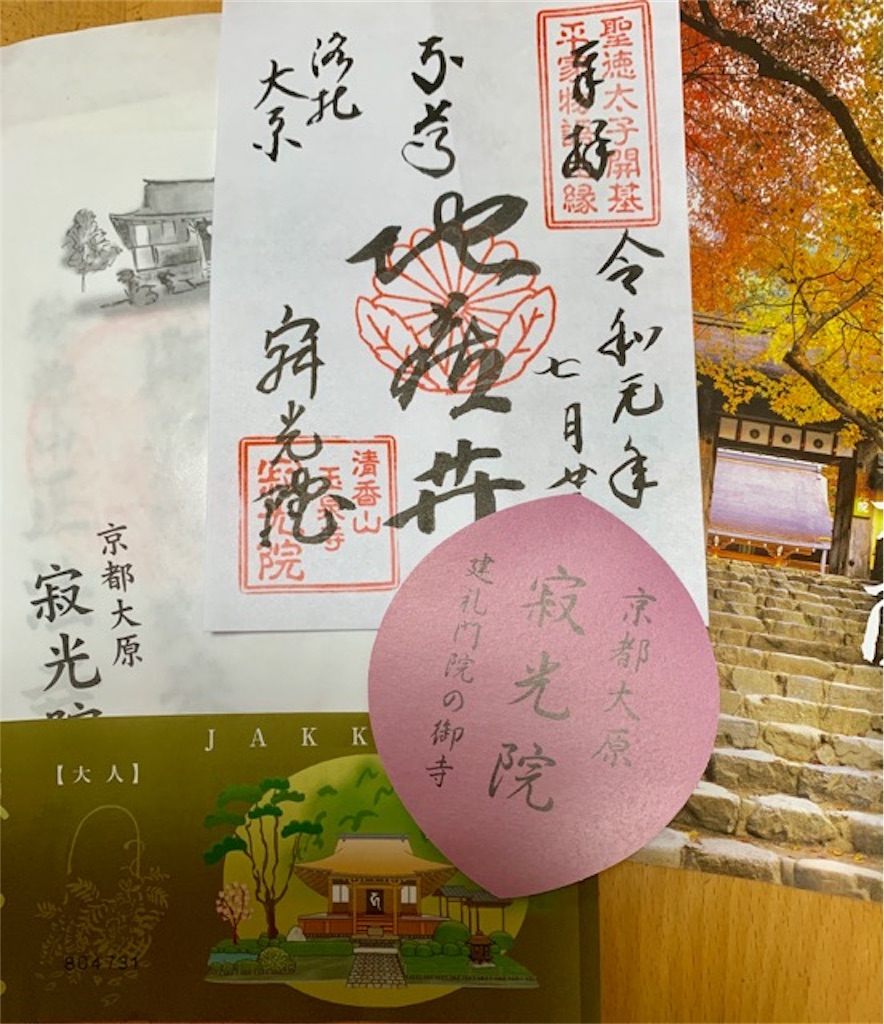 聖徳太子開基
平家物語 縁
奉拝
令和元年
七月廿
地蔵卉
洛北
大原
寂光院
清香山
玉泉寺
寂光院
京都大原
寂光院
建礼門院の御寺
京都大原
寂光院
JAKK
【大人】
804731